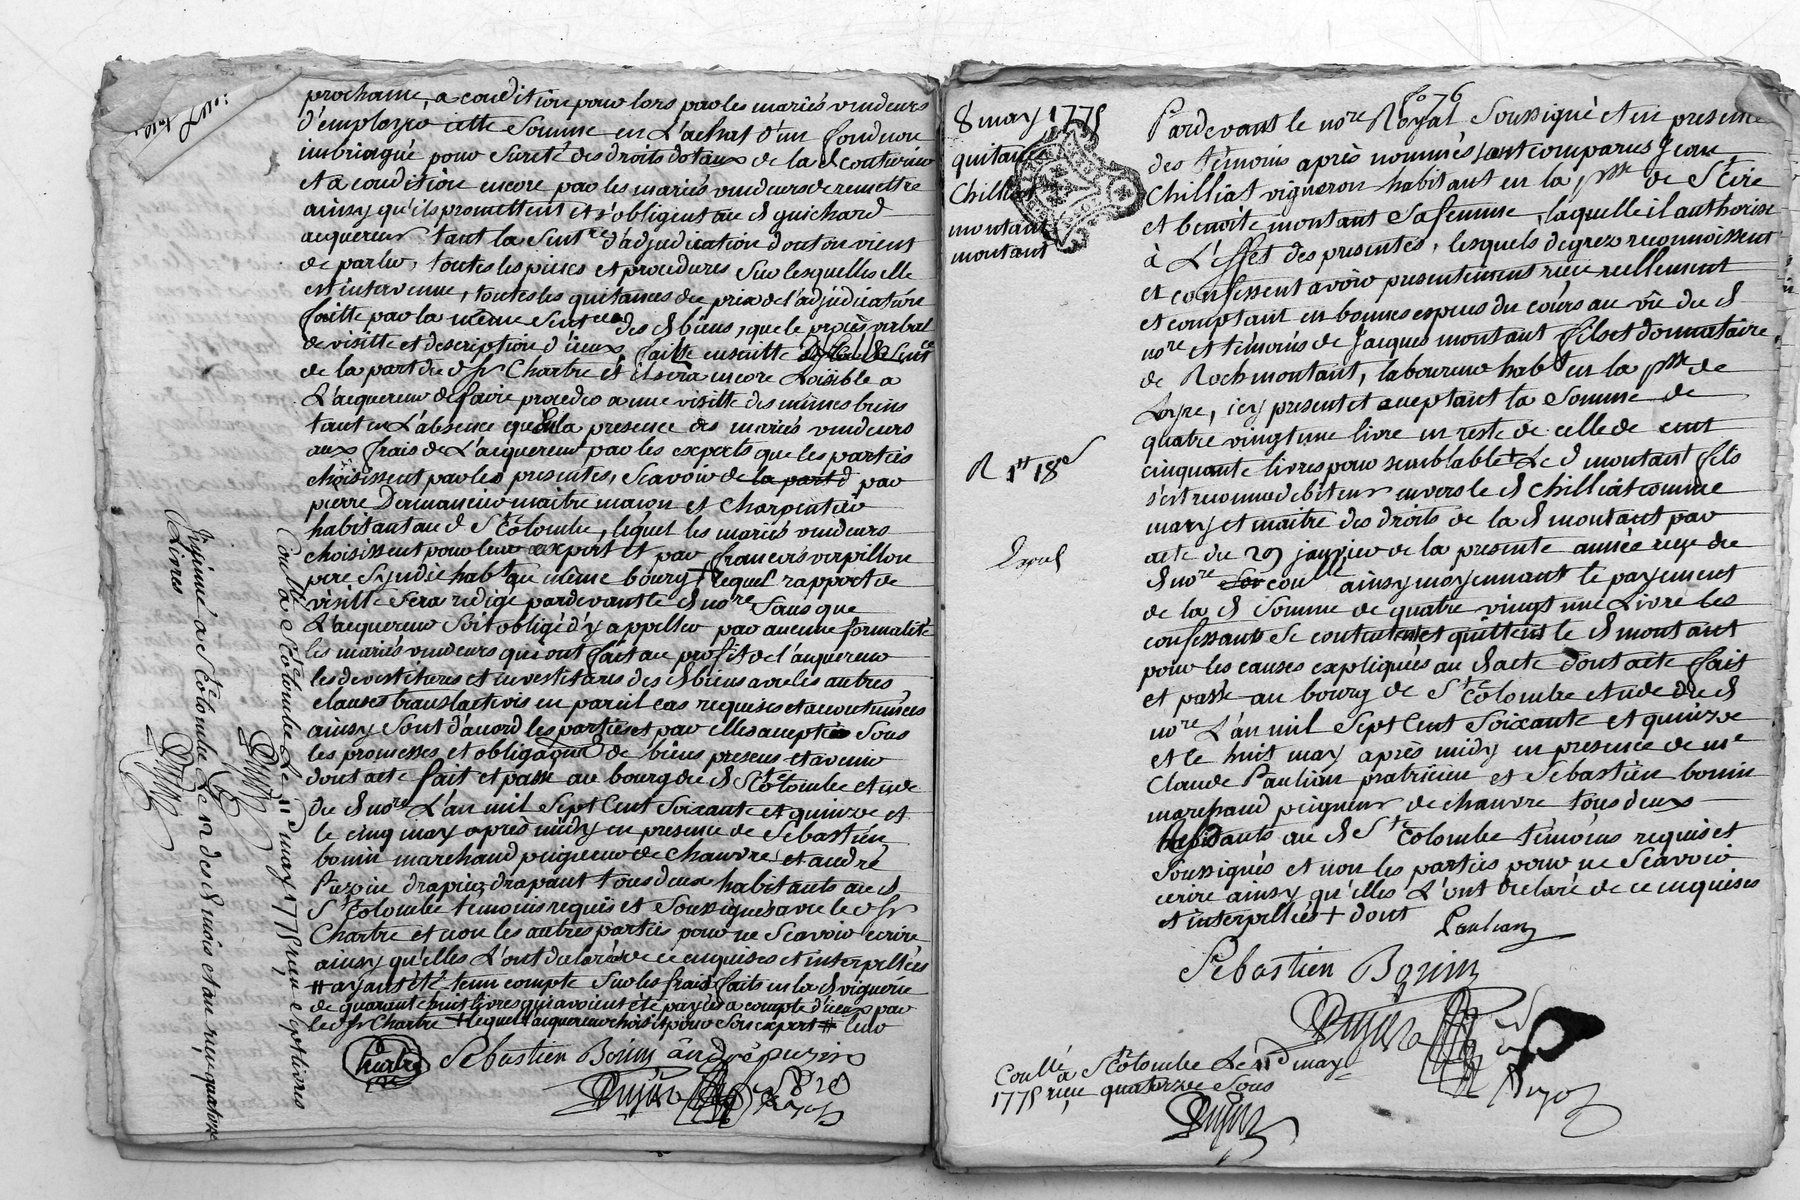 prochaine, a condition pour lors par les mariés vendeurs
d'employer cette Somme en L'achat d'un fond non
imbriqué pour Sureté des droits dotaux de la d Couturier
et a condition encore par les mariés vendeurs de remettre
ainsy qu'ils promettent et s'obligent au d guichard
acquereur tant la Sentce d'adjudication dont on vient
de parler, toutes les pieces et procedures Sur lesquelles elle
est intervenue, toutes les quitances du prix de l'adjudication
faitte par la même Sentce des d biens, que le procès verbal
de visitte et description d'iceux faitte ensuitte de la d Sentce
de la part du d Sr Chartre et il sera encore Loisible a
L'acquereur de faire proceder a une visitte des mêmes biens
tant en L'absence qu'en la presence des mariés vendeurs
aux frais de L'acquereur par les experts que les parties
choisissent par les presentes, Scavoir de la part d par
pierre maitre maçon et charpentier
habitant au d Ste Colombe, lequel les mariés vendeurs
choisissent pour leur expert et par françois verpillon
pere Syndic habt au même bourg + lequel rapport de
visitte Sera redigé pardevant le d nore Sans que
L'acquereur Soit obligé d'y appeller par aucune formalité
les mariés vendeurs qui ont fait au profit de l'acquereur
les devestitures et investitures des d biens avec les autres
clauses translatives en pareil cas requises et accoutumées
ainsy Sont d'acord les parties et par elles accepté Sous
les promesses et obligaons de biens presens et avenir
dont acte fait et passé au bourg du d Ste Colombe etude
du d nore L'an mil Sept Cent Soixante et quinze et
le cinq may après midy en presence de Sébastien
bonin marchand peigneur de chanvre et andré
Puzin drapier drapant tous deux habitants au d
Ste Colombe temoins requis et Soussignés avec le d Sr
Chartre et non les autres parties pour ne Scavoir ecrire
ainsy qu'elles L'ont declaré de ce enquises et interpellées
# ayant été tenu compte Sur les frais faits en la d viguerie
de quarante huit livres qui avoient été payées a compte d'iceux par
le d Sr Chartre + lequel l'acquereur choisit pour Son expert #
Chartre Sebastien Bonin andré puzin
Coullé a Ste Colombe Le 11 may 1775 reçu sept livres
Insinué a Ste Colombe Le
Livres
8 may 1775
quitance
Chilliat
montant
montant
R 1tt 18s
Expé
fo 76
Pardevant le nore Royal Soussigné et en presence
des témoins après nommés sont comparus Jean
Chilliat vigneron habitant en la psse de St Cire
et benoite montant Sa femme, laquelle il authorise
à L'effet des presentes, lesquels de grez reconnoissent
et confessent avoir presentement reçu reellement
et comptant en bonnes especes du cours au vû du d
nore et témoins de Jacques montant fils et donnataire
de Roch montant, laboureur habt en la psse de
Loyre, icy present et aceptant la Somme de
quatre vingt une livre en reste de celle de cent
cinquante livres pour semblable + Le d montant fils
s'est reconnu debiteur envers le d Chilliat comme
mary et maitre des droits de la d montant par
acte du 29 janvier de la presente année reçu du
d nore coullé ainsy moyennant le payement
de la d Somme de quatre vingt une Livre les
confessants Se contentent et quittent le d montant
pour les causes expliquées au d acte dont acte fait
et passé au bourg de Ste Colombe etude du d
nore L'an mil Sept Cent Soixante et quinze
et le huit may après midy en presence de me
Claude Paulian praticien et Sébastien bonin
marchand peigneur de chanvre tous deux
habitants au d Ste Colombe témoins requis et
soussignés et non les parties pour ne Scavoir
ecrire ainsy qu'elles L'ont declaré de ce enquises
et interpellées + dont
Paulian
Sebastien Bonin
Coullé a Ste Colombe Le 11d may
1775 reçu quatorze Sous